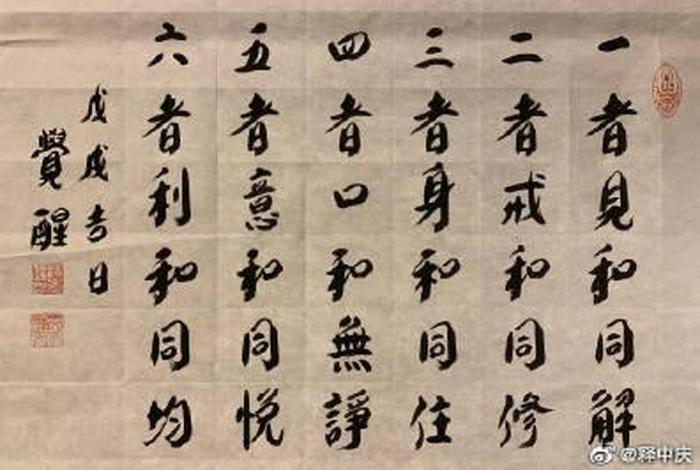 一者見和同解
二者戒和同修
三者身和同住
四者口和無諍
五者意和同悦
六者利和同均
戊戌吉日
覺醒
@释中庆